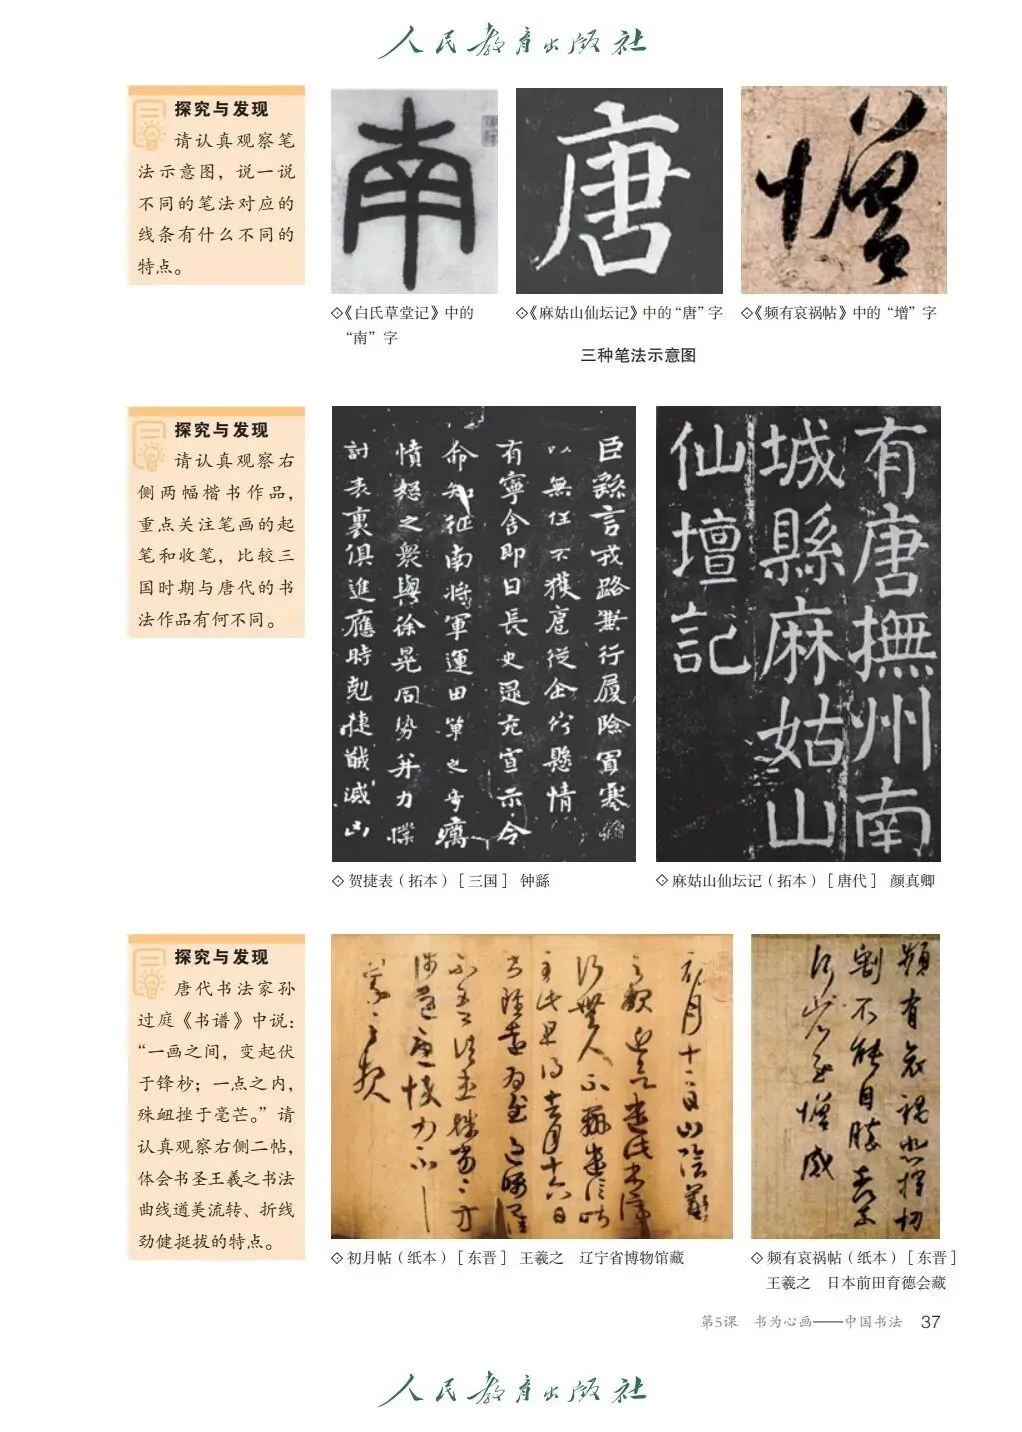 人民教育出版社
探究与发现
请认真观察笔
法示意图，说一说
不同的笔法对应的
线条有什么不同的
特点。
南
唐
增
◇《白氏草堂记》中的
“南”字
◇《麻姑山仙坛记》中的“唐”字
◇《频有哀祸帖》中的“增”字
三种笔法示意图
探究与发现
请认真观察右
侧两幅楷书作品，
重点关注笔画的起
笔和收笔，比较三
国时期与唐代的书
法作品有何不同。
臣繇言戎路兼行履险冒寒
以無任不獲扈從企佇懸情
有寧舍即日長史逯充宣示令
命知征南將軍運田單之奇厲
憤怒之衆與徐晃同势并力撲
討表裏俱進應時剋捷馘滅凶
有唐撫州南
城縣麻姑山
仙壇記
◇贺捷表（拓本）［三国］ 钟繇
◇麻姑山仙坛记（拓本）［唐代］ 颜真卿
探究与发现
唐代书法家孙
过庭《书谱》中说：
“一画之间，变起伏
于锋杪；一点之内，
殊衄挫于毫芒。”请
认真观察右侧二帖，
体会书圣王羲之书法
曲线遒美流转、折线
劲健挺拔的特点。
初月十二日山陰羲
頻有哀禍悲摧切
割不能自勝奈何
◇初月帖（纸本）［东晋］ 王羲之 辽宁省博物馆藏
◇频有哀祸帖（纸本）［东晋］
王羲之 日本前田育德会藏
第5课 书为心画——中国书法 37
人民教育出版社